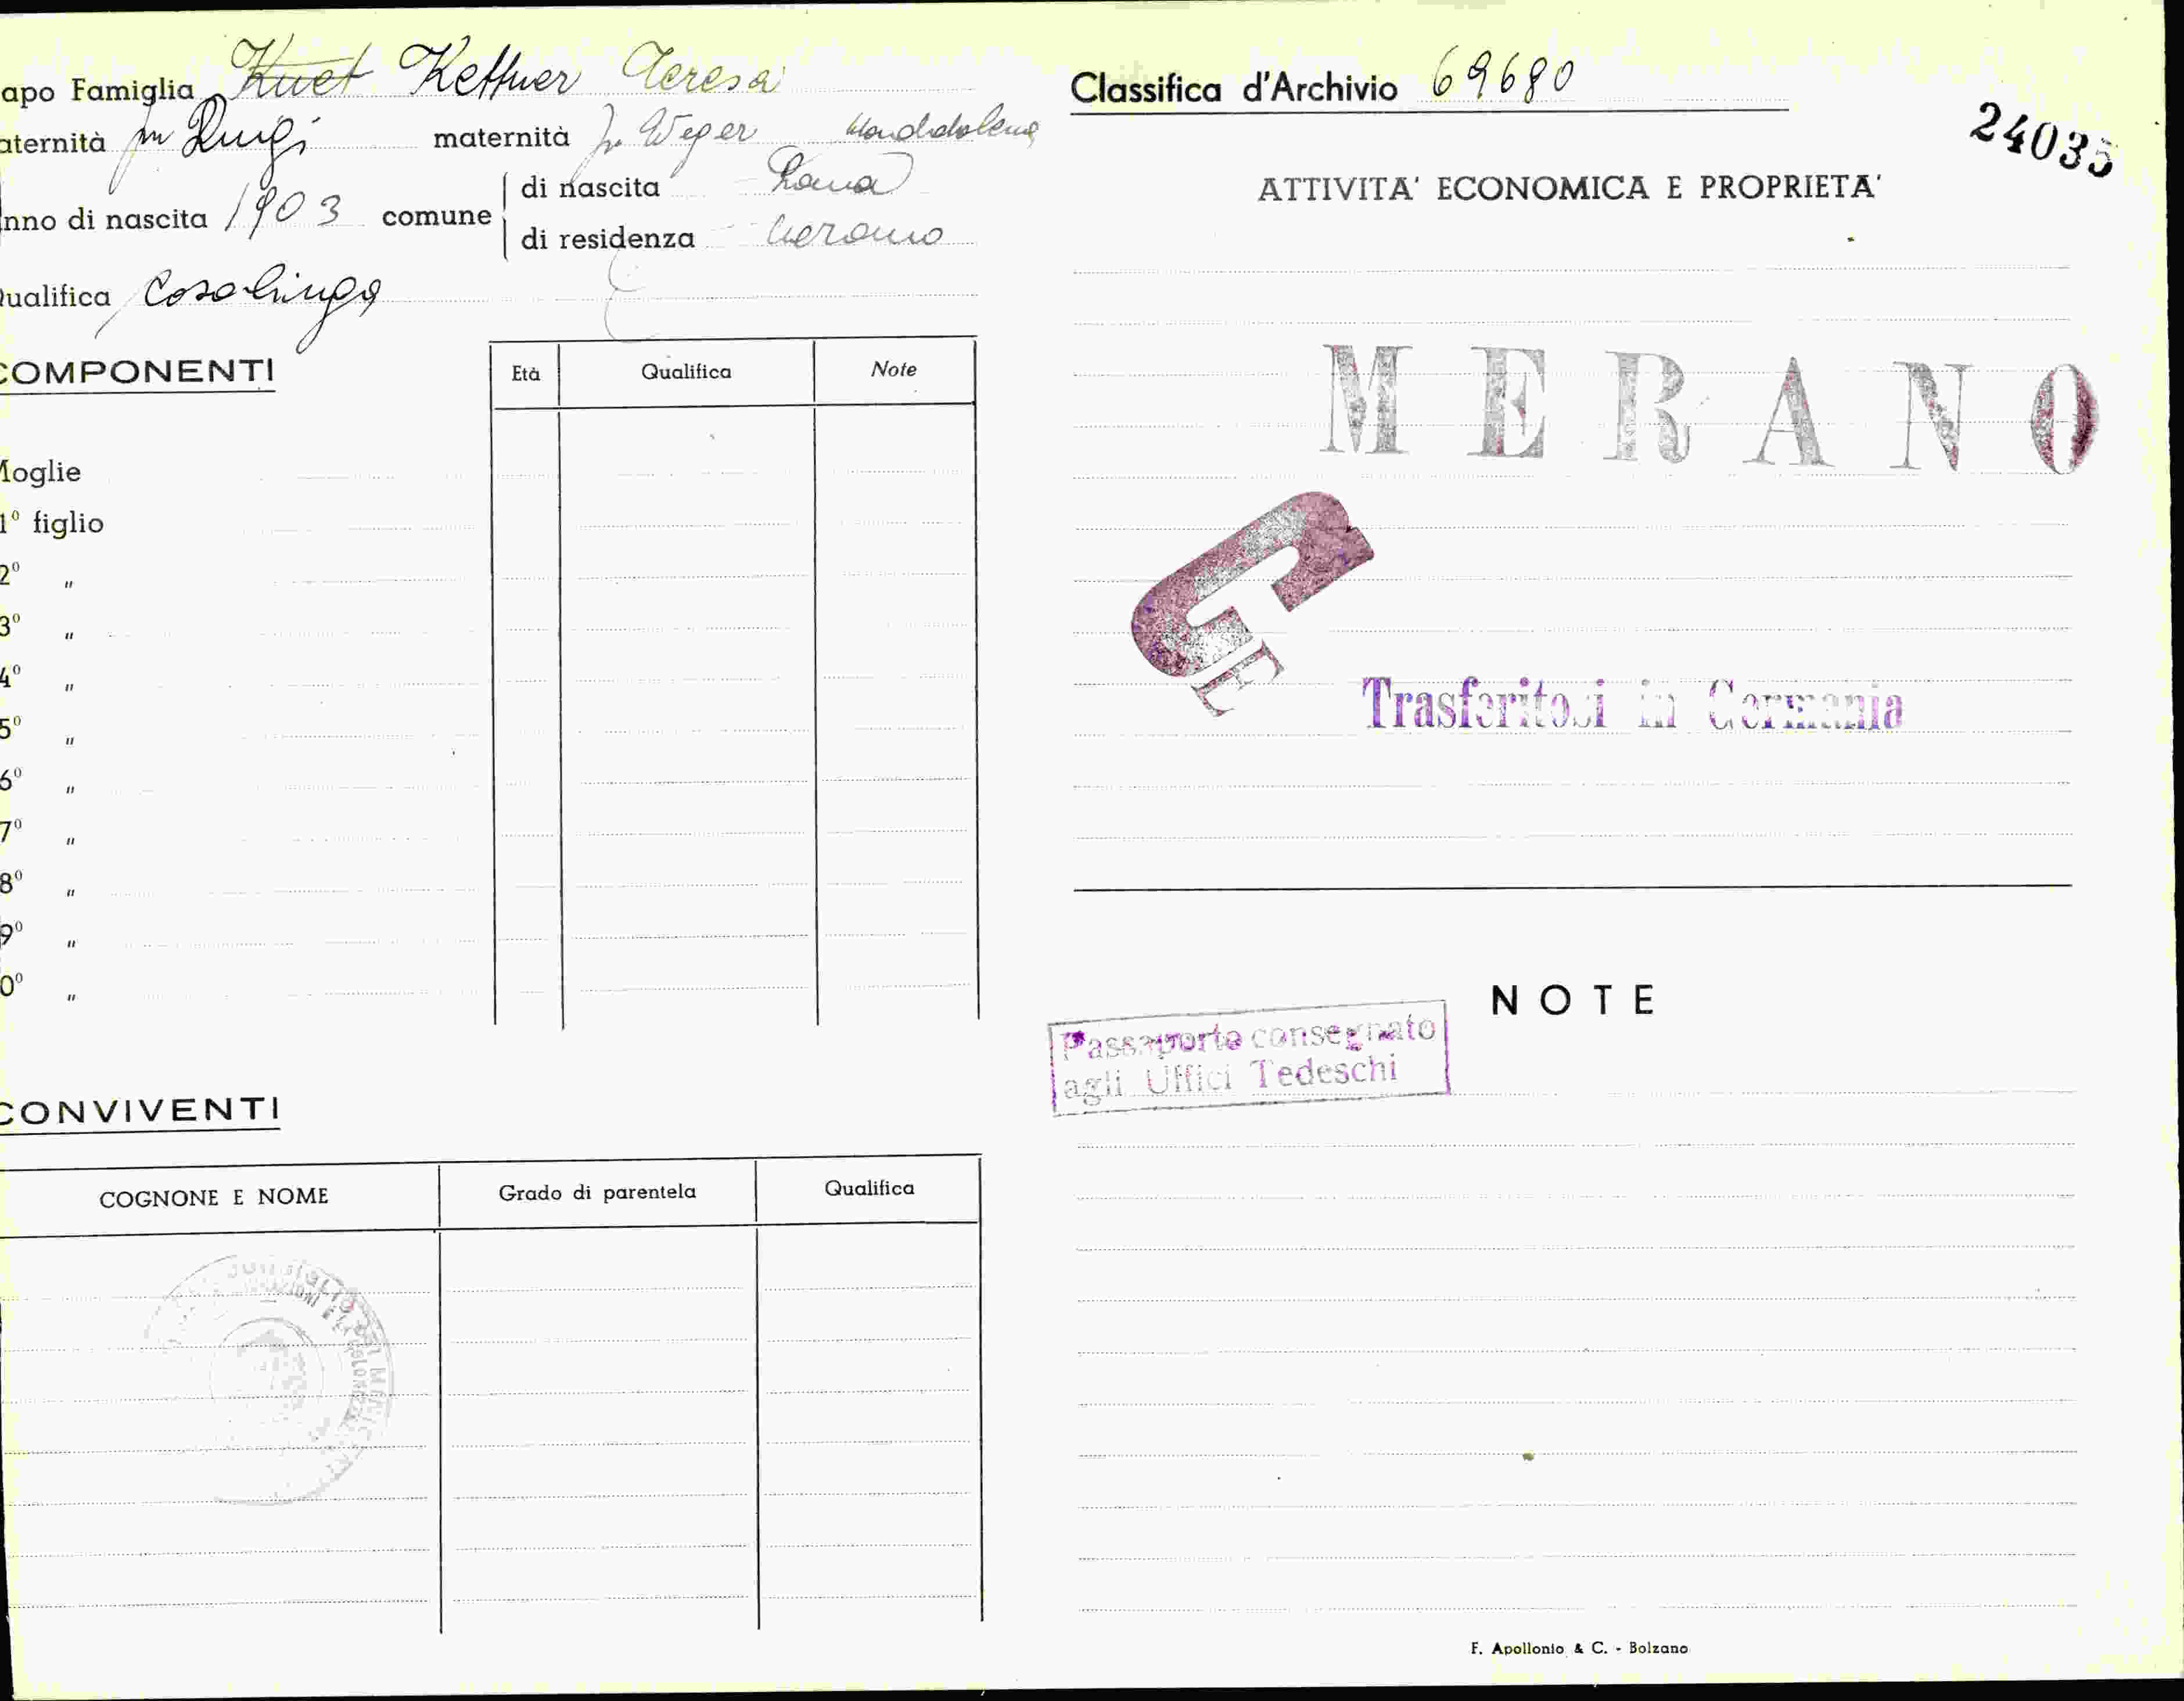 apo Famiglia Kettner Teresa
aternità fu Luigi maternità fu Weger
nno di nascita 1903 comune di nascita Lana
di residenza Merano
ualifica Casalinga
COMPONENTI
Età Qualifica Note
Moglie
1° figlio
2° "
3° "
4° "
5° "
6° "
7° "
8° "
9° "
0° "
CONVIVENTI
COGNONE E NOME Grado di parentela Qualifica
Classifica d'Archivio 69680
24035
ATTIVITA' ECONOMICA E PROPRIETA'
MERANO
G
E
Trasferitosi in Germania
NOTE
Passaporto consegnato
agli Uffici Tedeschi
F. Apollonio & C. - Bolzano